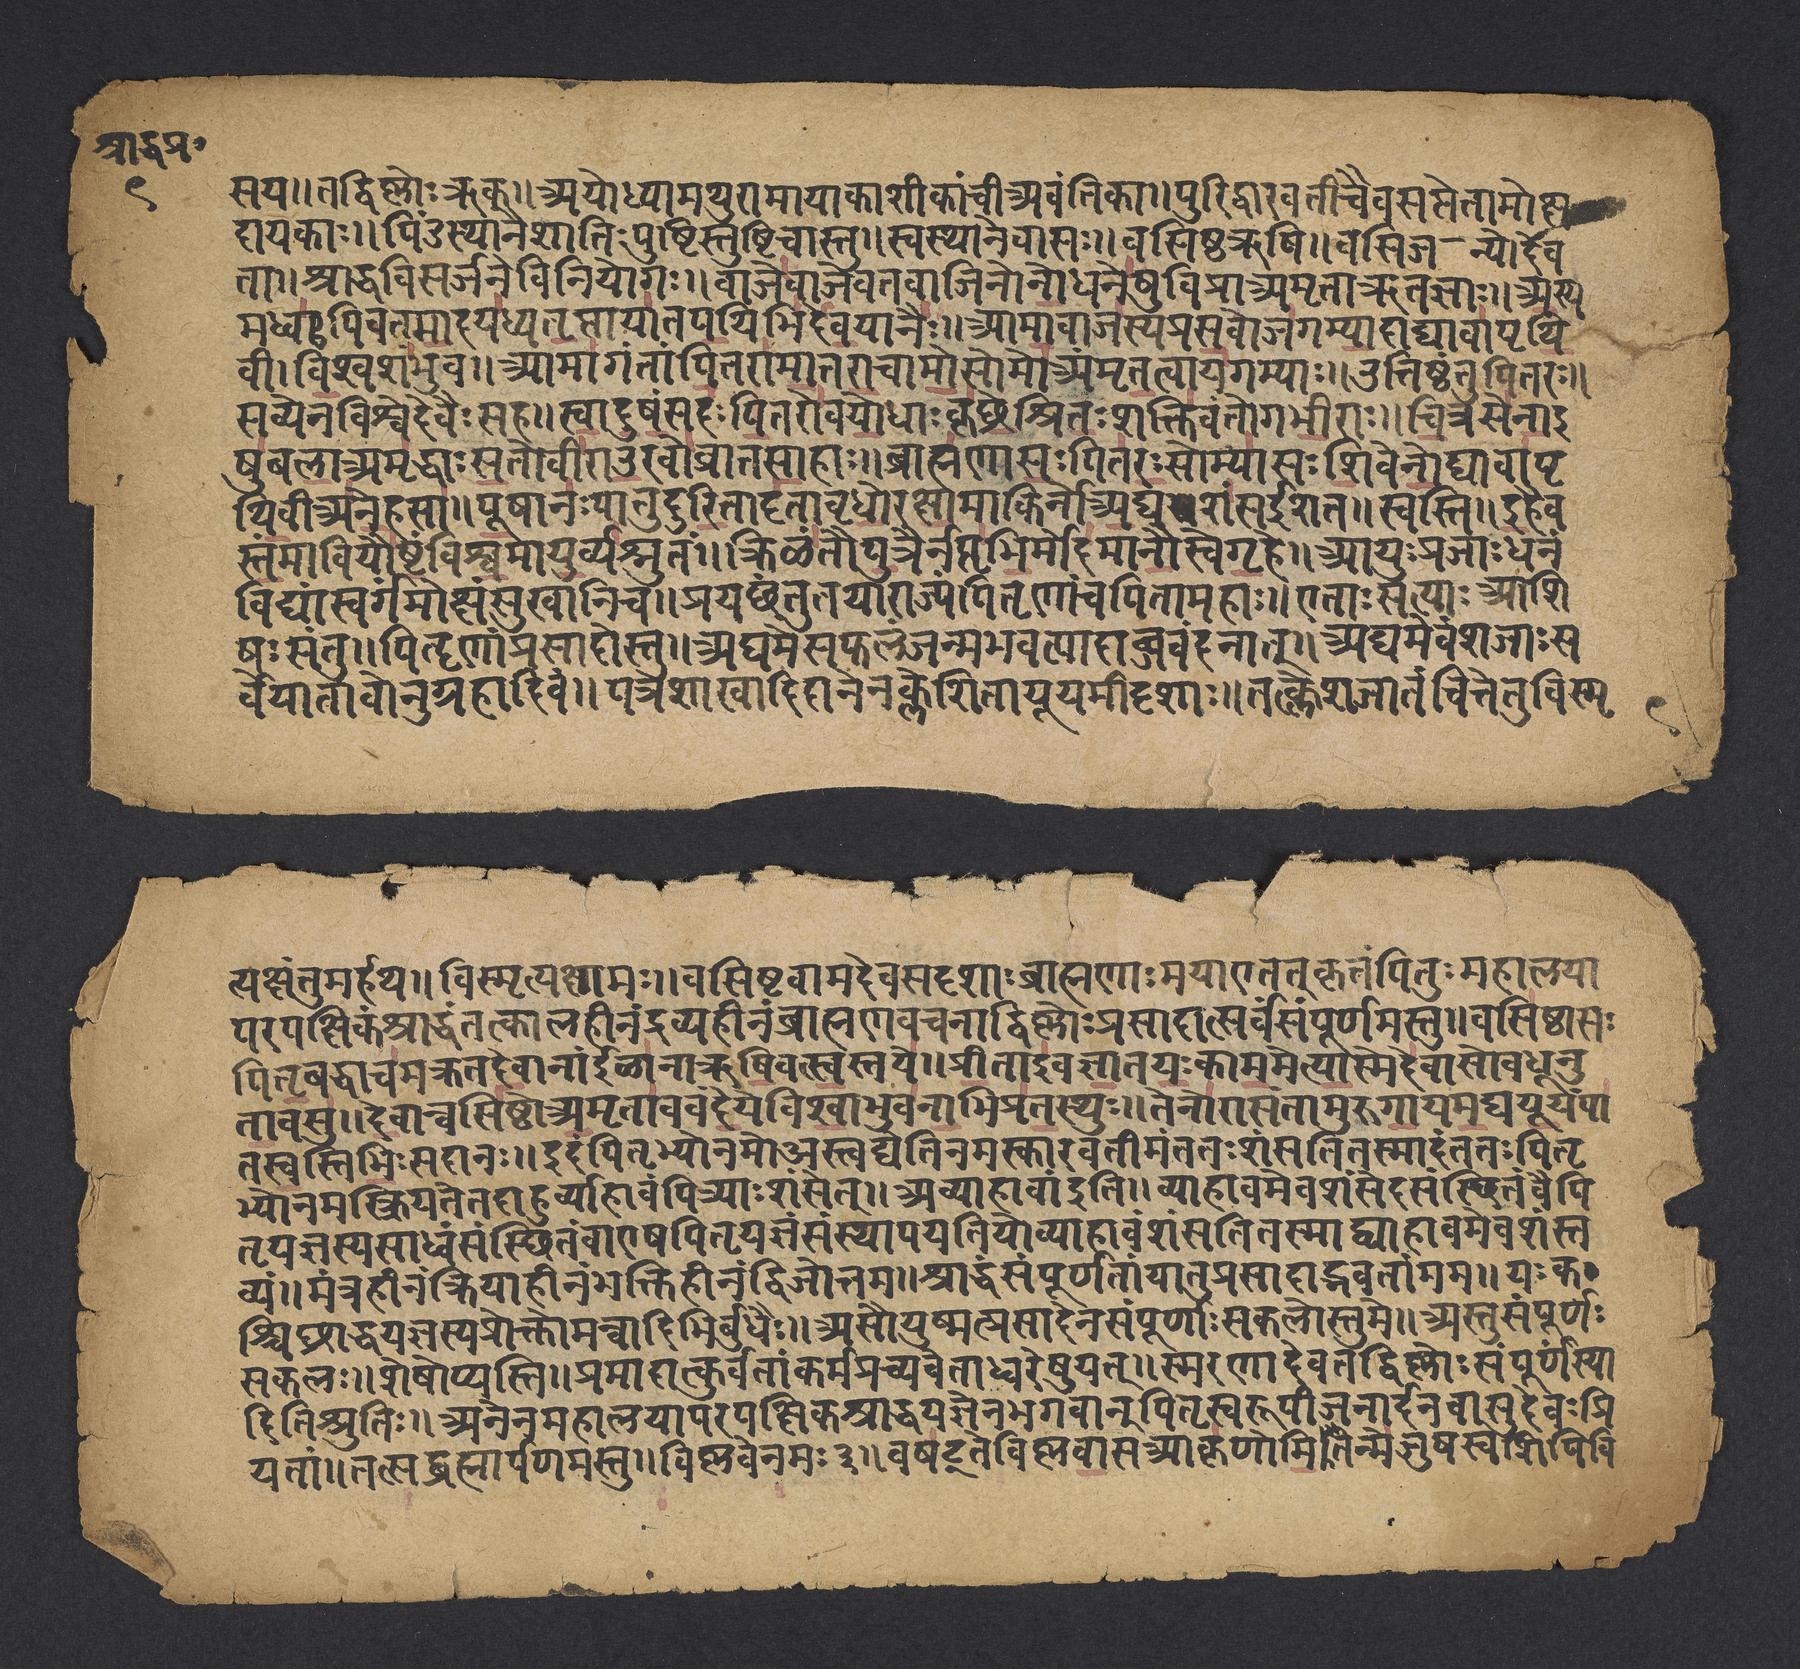 श्राद्धप्र॰
९
सय॥तद्विष्णोःऋक्॥अयोध्यामथुरामायाकाशीकांचीअवंतिका॥पुरिद्वारवतीचैवसप्तैतामोक्ष
दायकाः॥पिंडस्थानेशांतिःपुष्टिस्तुष्टिचास्तु॥स्वस्थानेवासः॥वसिष्ठऋषि॥वसिज-न्योर्देव
ता॥श्राद्धविसर्जनेविनियोगः॥वाजेवाजेवतवाजिनोनोधनेषुविप्राअमृताऋतज्ञाः॥अस्य
मध्वःपिबतमादयध्वंतृप्तायातपथिभिर्देवयानैः॥आमावाजस्यप्रसवोजगम्यादाद्यावापृथि
वी।विश्वशंभुव॥आमागंतांपितरामातराचामासोमोअमृतत्वायगम्याः॥उत्तिष्ठंतुपितरः॥
सव्येनविश्वेदेवैःसह॥स्वादुषंसदःपितरोवयोधाःकृछ्रेश्रितःशक्तिवंतोगभीराः॥चित्रसेनाइ
षुबलाअमृद्धाःसतोवीराउरवोव्रातसाहाः॥ब्राह्मणासःपितरःसोम्यासःशिवेनोद्यावापृ
थिवीअनेहसा॥पूषानःपातुदुरितादृतावृधोरक्षामाकिर्नोअघशंसईशत॥स्वस्ति॥इहैव
स्तंमावियोष्टंविश्वमायुर्व्यश्नुतं॥क्रिळंतौपुत्रैर्नप्तृभिर्मोदमानौस्वेगृहे॥आयुःप्रजाःधनं
विद्यांस्वर्गंमोक्षंसुखानिच॥प्रयछंतुतथाराज्यंपितृणांचपितामहाः॥एताःसत्याःआशि
षःसंतु॥पितॄणांप्रसादोस्तु॥अद्यमेसफलंजन्मभवत्पादाब्जवंदनात्॥अद्यमेवंशजाःस
र्वेयातावोनुग्रहाद्दिवं॥पत्रशाखादिदानेनक्लेशितायूयमीदृशाः॥तत्क्लेशजातंचित्तेतुविस्मृ
९
त्यक्षंतुमर्हथ॥विस्मृत्यक्षामः॥वसिष्टवामदेवसदृशाःब्राह्मणाःमयाएतत्कृतंपितुःमहालया
परपक्षिकंश्राद्धंतत्कालहीनंद्रव्यहीनंब्राह्मणवचनाद्विष्णोःप्रसादात्सर्वंसंपूर्णमस्तु॥वसिष्ठासः
पितृवद्वाचमक्रतदेवानांईळानाऋषिवत्स्वस्तये॥प्रीताइवज्ञातयःकाममेत्यास्मेदेवासोवधूनु
तावसु॥देवान्वसिष्ठोअमृतान्ववंदेयेविश्वाभुवनाभिप्रतस्थुः॥तेनोरासंतामुरुगायमद्ययूयंपा
तस्वस्तिभिःसदानः॥इदंपितृभ्योनमोअस्त्वद्येतिनमस्कारवतीमंततःशंसतितस्मादंततःपितृ
भ्योनमस्क्रियतेतदाहुर्व्याहावंपित्र्याःशंसेत्॥अव्याहावां३इति॥व्याहावमेवशंसेदसंस्थितंवैपि
तृयज्ञस्यसाध्वंसंस्थितंवाएषपितृयज्ञंसंस्थापयतियोव्याहावंशंसतितस्माद्व्याहावमेवशंस्त
व्यं॥मंत्रहीनंक्रियाहीनंभक्तिहीनंद्विजोत्तम॥श्राद्धंसंपूर्णतांयातुप्रसादाद्भवतांमम॥यःक
श्चिछ्राद्धयज्ञस्यप्रोक्तोमन्वादिभिर्बुधैः॥असौयुष्मत्प्रसादेनसंपूर्णःसकलोस्तुमे॥अस्तुसंपूर्णः
सकलः॥शेषोप्यस्ति॥प्रमादात्कुर्वतांकर्मप्रच्यवेताध्वरेषुयत्॥स्मरणादेवतद्विष्णोःसंपूर्णंस्या
दितिश्रुतिः॥अनेनमहालयापरपक्षिकश्राद्धयज्ञेनभगवान्पितृस्वरूपीजनार्दनवासुदेवःप्रि
यतां॥तत्सद्ब्रह्मार्पणमस्तु॥विष्णवेनमः३॥वषट्तेविष्णवासआकृणोमितन्मेजुषस्वशिपिवि